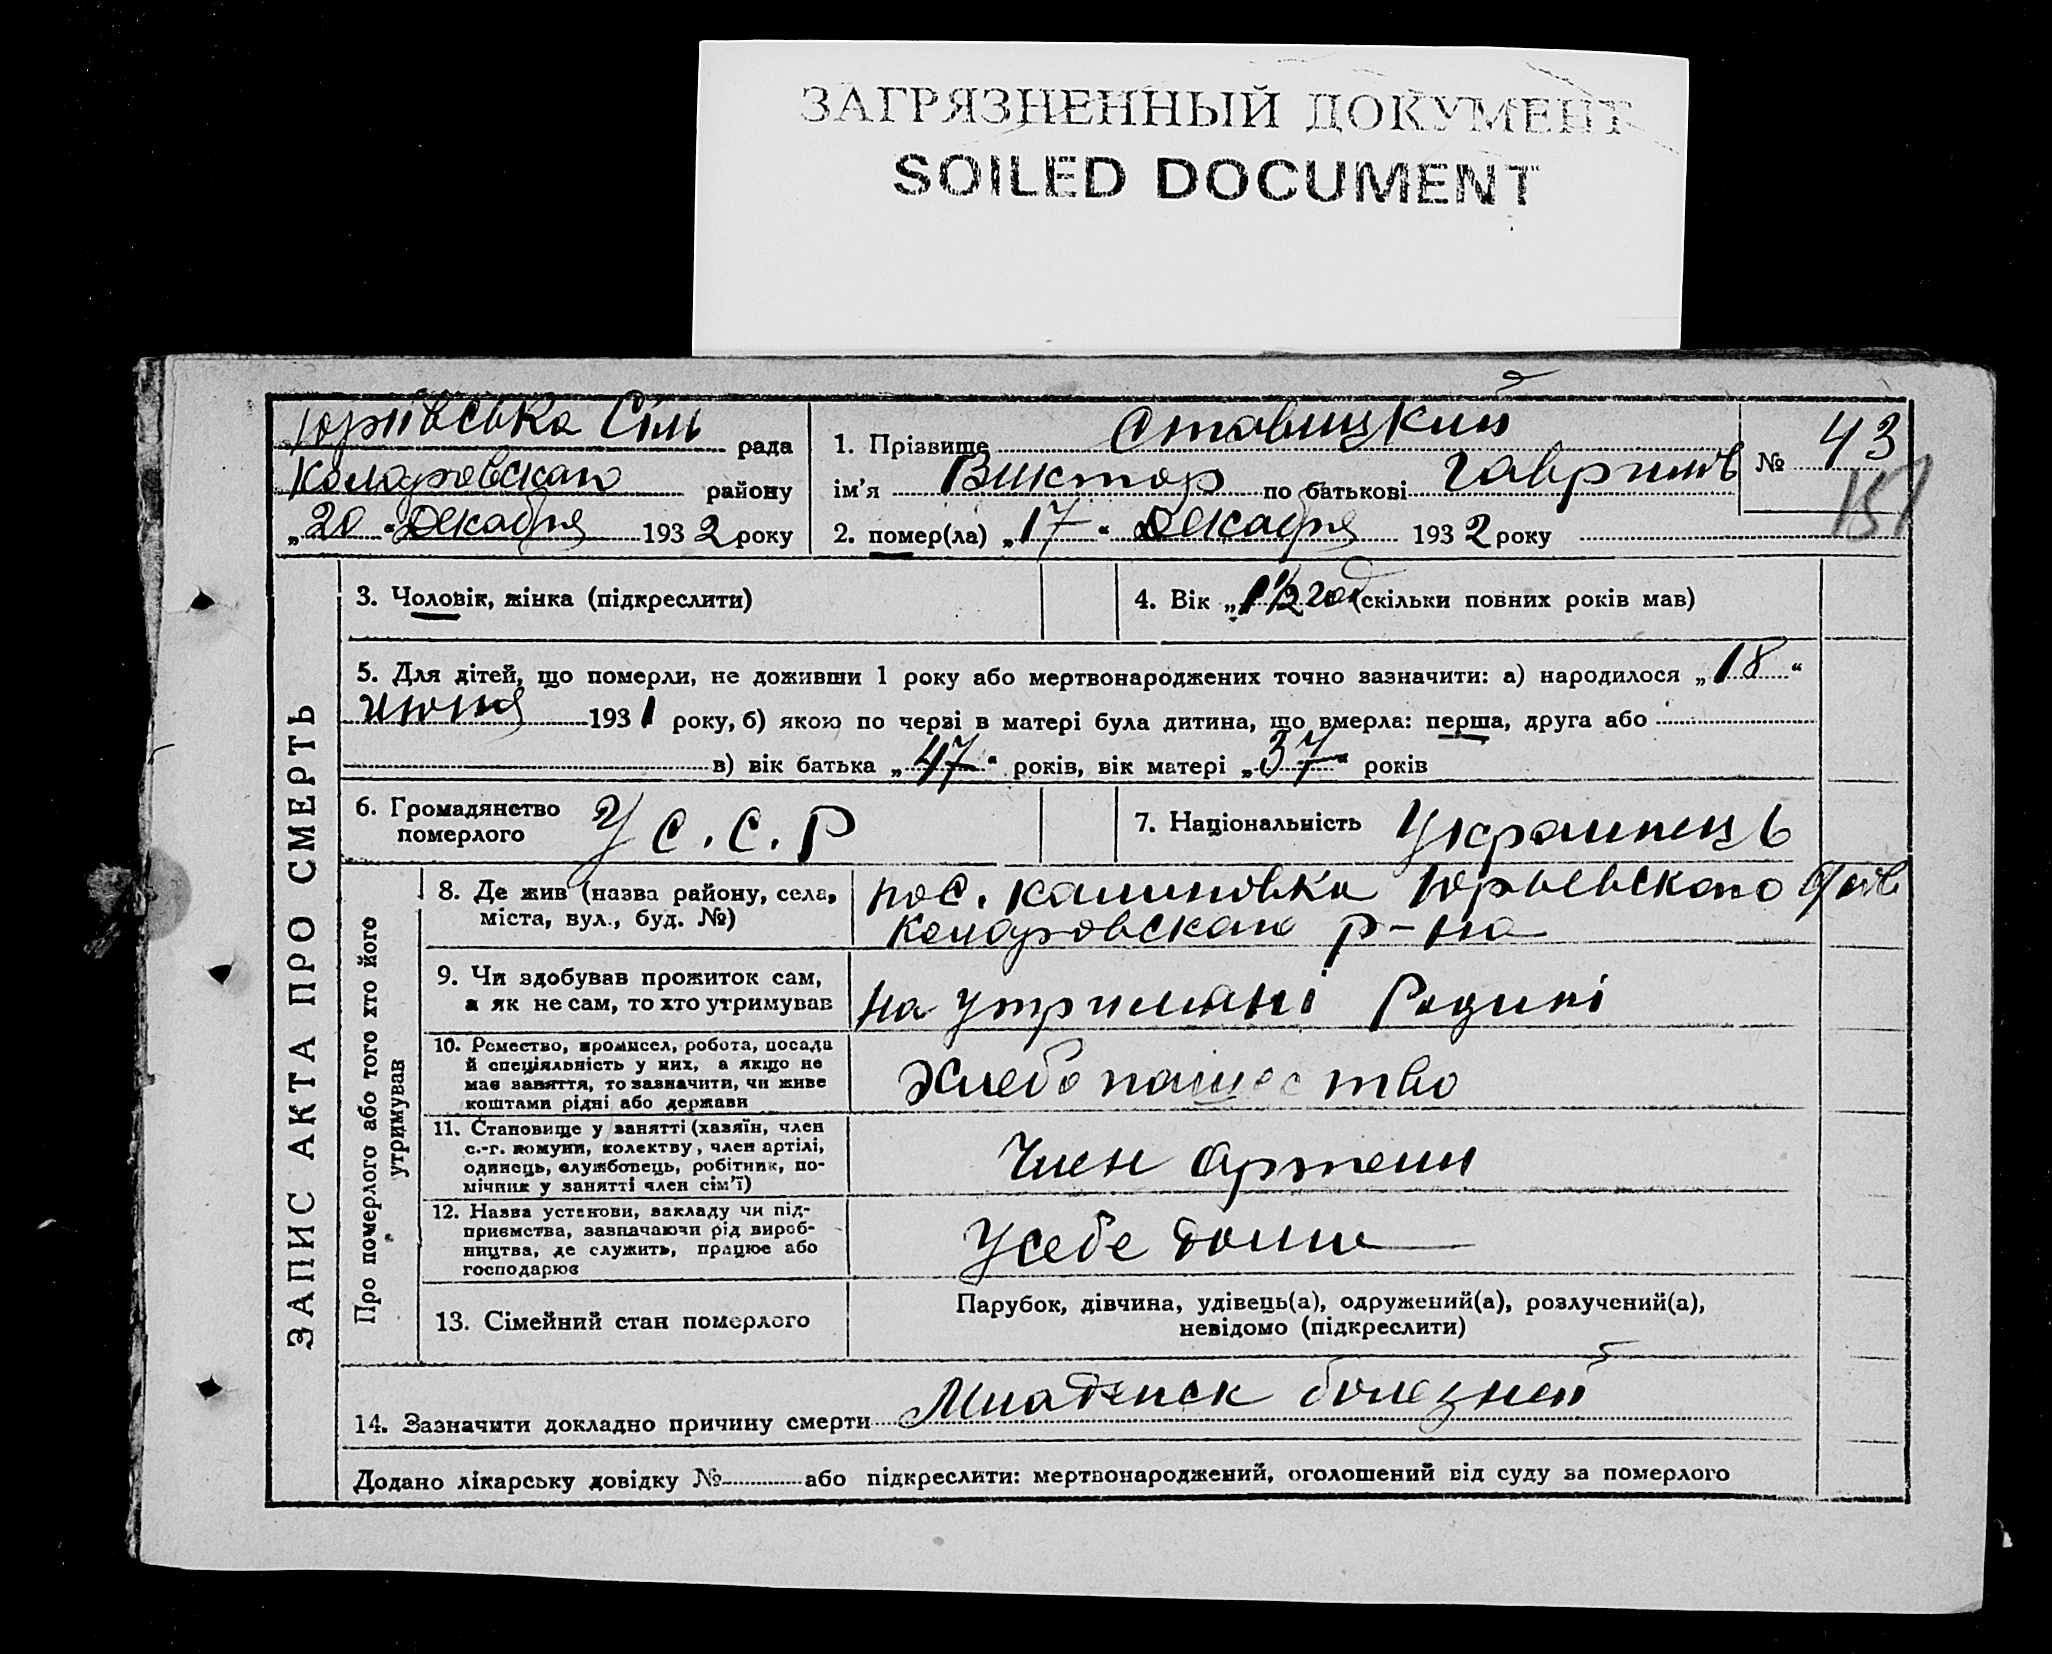 ЗАГРЯЗНЕННЫЙ ДОКУМЕНТ
SOILED DOCUMENT
Юріівська Сіль рада
Коларовскаго району
„20“ Декабря 1932 року
1. Прізвище Ставицкий
ім'я Виктор по батькові Гаврилов
2. помер(ла) „17“ Декабря 1932 року
№ 43
151
ЗАПИС АКТА ПРО СМЕРТЬ
3. Чоловік, жінка (підкреслити)
4. Вік „1½ год (скільки повних років мав)
5. Для дітей, що померли, не доживши 1 року або мертвонароджених точно зазначити: а) народилося „18“
июня 1931 року, б) якою по черзі в матері була дитина, що вмерла: перша, друга або
в) вік батька „47“ років, вік матері „37“ років
6. Громадянство
померлого
У С.С.Р
7. Національність Украинець
Про померлого або того хто його
утримував
8. Де жив (назва району, села,
міста, вул., буд. №)
пос. Калиновка Юрьевского
Коларовскаго р-на
9. Чи здобував прожиток сам,
а як не сам, то хто утримував
на утримані Родині
10. Ремество, промисел, робота, посада
й спеціяльність у них, а якщо не
має заняття, то зазначити, чи живе
коштами рідні або держави
Хлебопашество
11. Становище у занятті (хазяїн, член
с.-г. комуни, колектву, член артілі,
одинець, службовець, робітник, по-
мічник у занятті член сім'ї)
Член Артели
12. Назва установи, закладу чи під-
приємства, зазначаючи рід вироб-
ництва, де служить, працює або
господарює
У себе дома
13. Сімейний стан померлого
Парубок, дівчина, удівець(а), одружений(а), розлучений(а),
невідомо (підкреслити)
14. Зазначити докладно причину смерти Младенск болезней
Додано лікарську довідку № або підкреслити: мертвонароджений, оголошений від суду за померлого